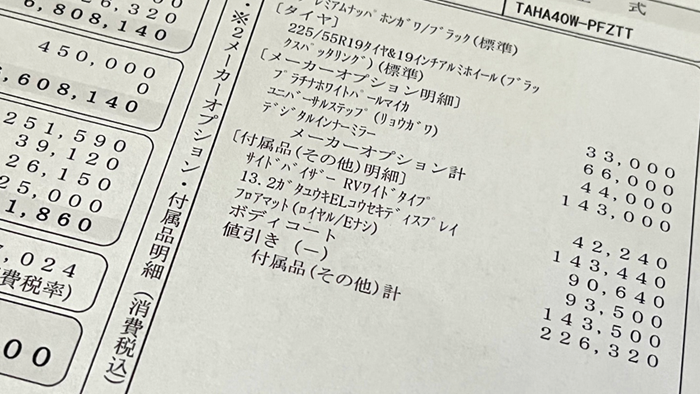 6,320
6,808,140
450,000
0
6,608,140
251,590
39,120
26,150
25,000
1,860
7,024
費税率)
00
・※2メーカーオプション・付属品明細(消費税込)
式
TAHA40W-PFZTT
レミアムナッパ ホンガワ/ブラック(標準)
[タイヤ]
225/55R19タイヤ&19インチアルミホイール(ブラッ
クスパッタリング)(標準)
[メーカーオプション明細]
プラチナホワイトパールマイカ 33,000
ユニバーサルステップ(リョウガワ) 66,000
デジタルインナーミラー 44,000
メーカーオプション計 143,000
[付属品(その他)明細]
サイドバイザー RVワイドタイプ 42,240
13.2ガタユウキELコウセキディスプレイ 143,440
フロアマット(ロイヤル/Eナシ) 90,640
ボディコート 93,500
値引き(-) 143,500
付属品(その他)計 226,320